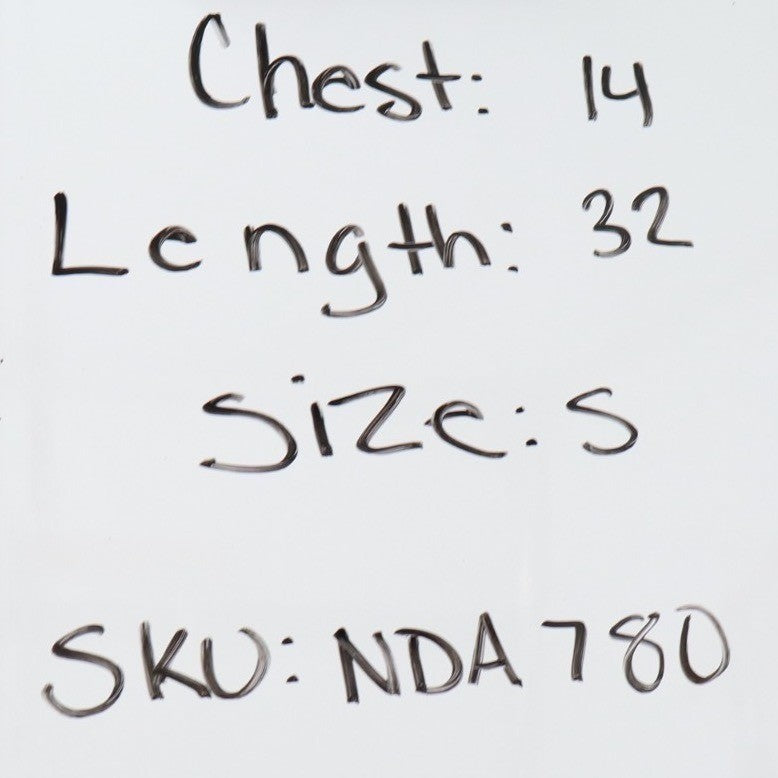 Chest: 14
Length: 32
Size: S
SKU: NDA 780